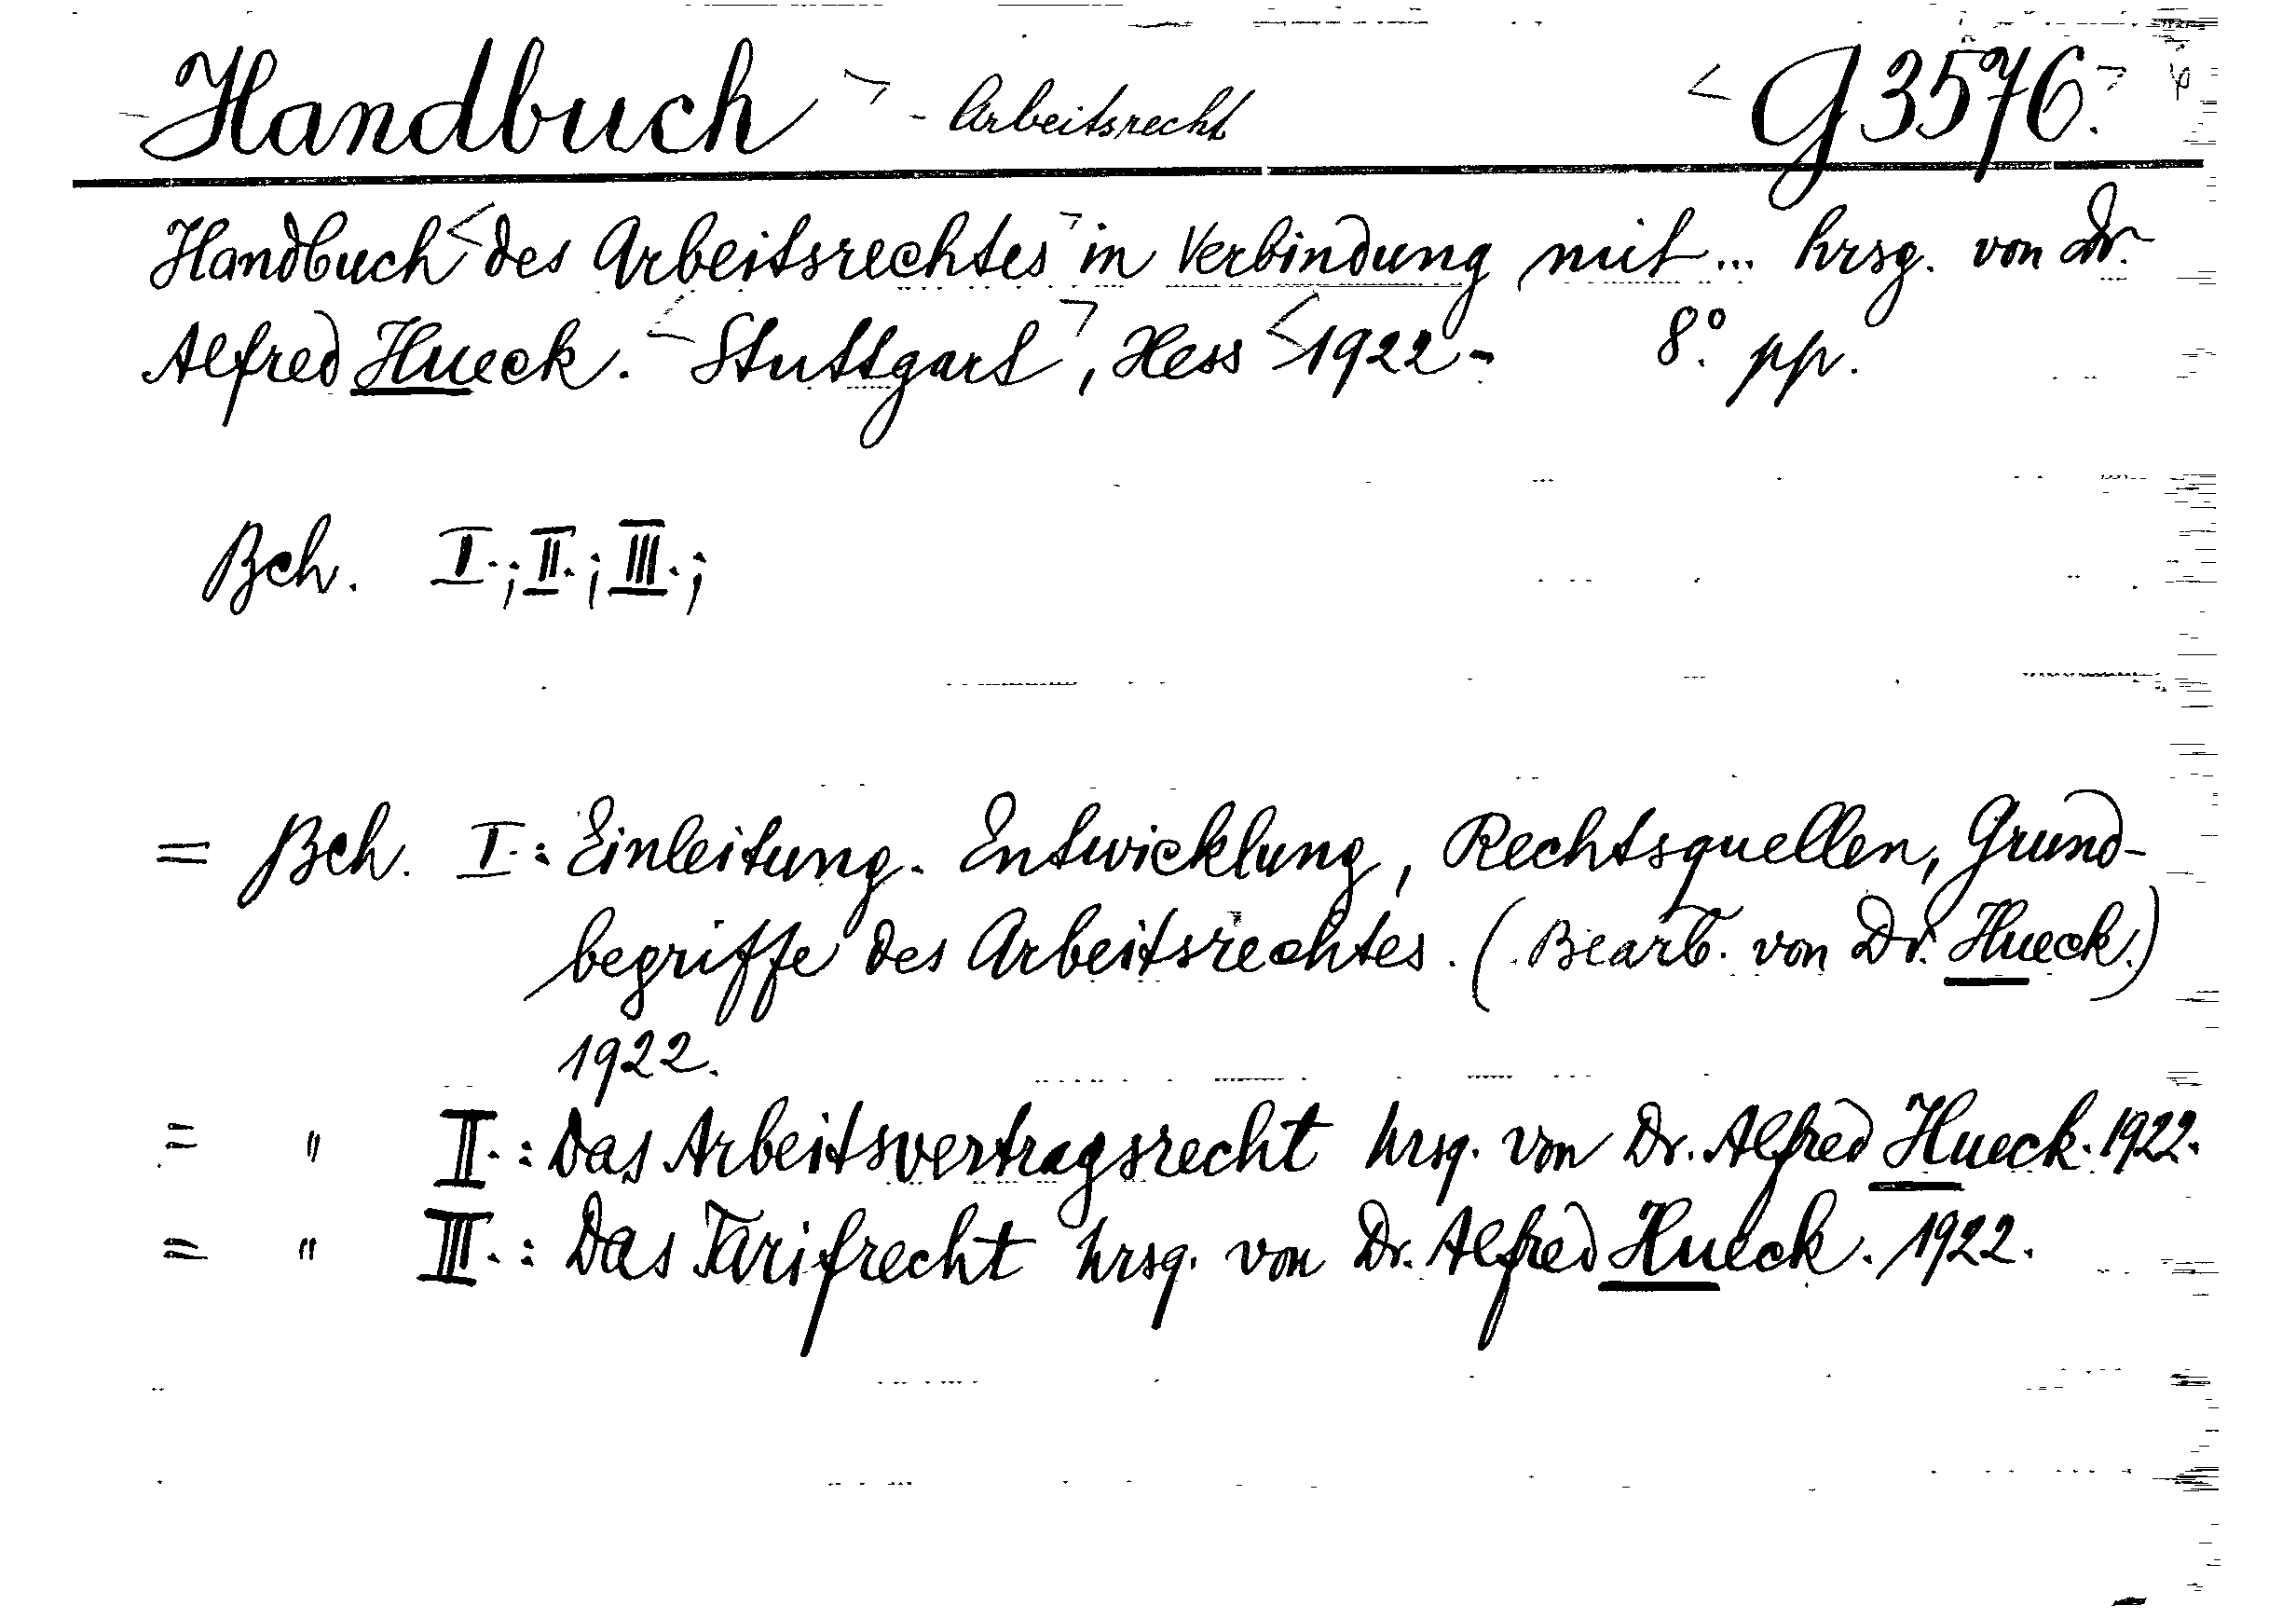 Handbuch - Arbeitsrecht G 3576.
Handbuch des Arbeitsrechtes in Verbindung mit... hrsg. von Dr.
Alfred Hueck. Stuttgart, Hess 1922- 8° pp.
Bch. I.; II.; III.;
= Bch. I.: Einleitung. Entwicklung, Rechtsquellen, Grund-
begriffe des Arbeitsrechtes. (Bearb. von Dr. Hueck.)
1922.
= " II.: Das Arbeitsvertragsrecht hrsg. von Dr. Alfred Hueck. 1922.
= " III.: Das Tarifrecht hrsg. von Dr. Alfred Hueck. 1922.